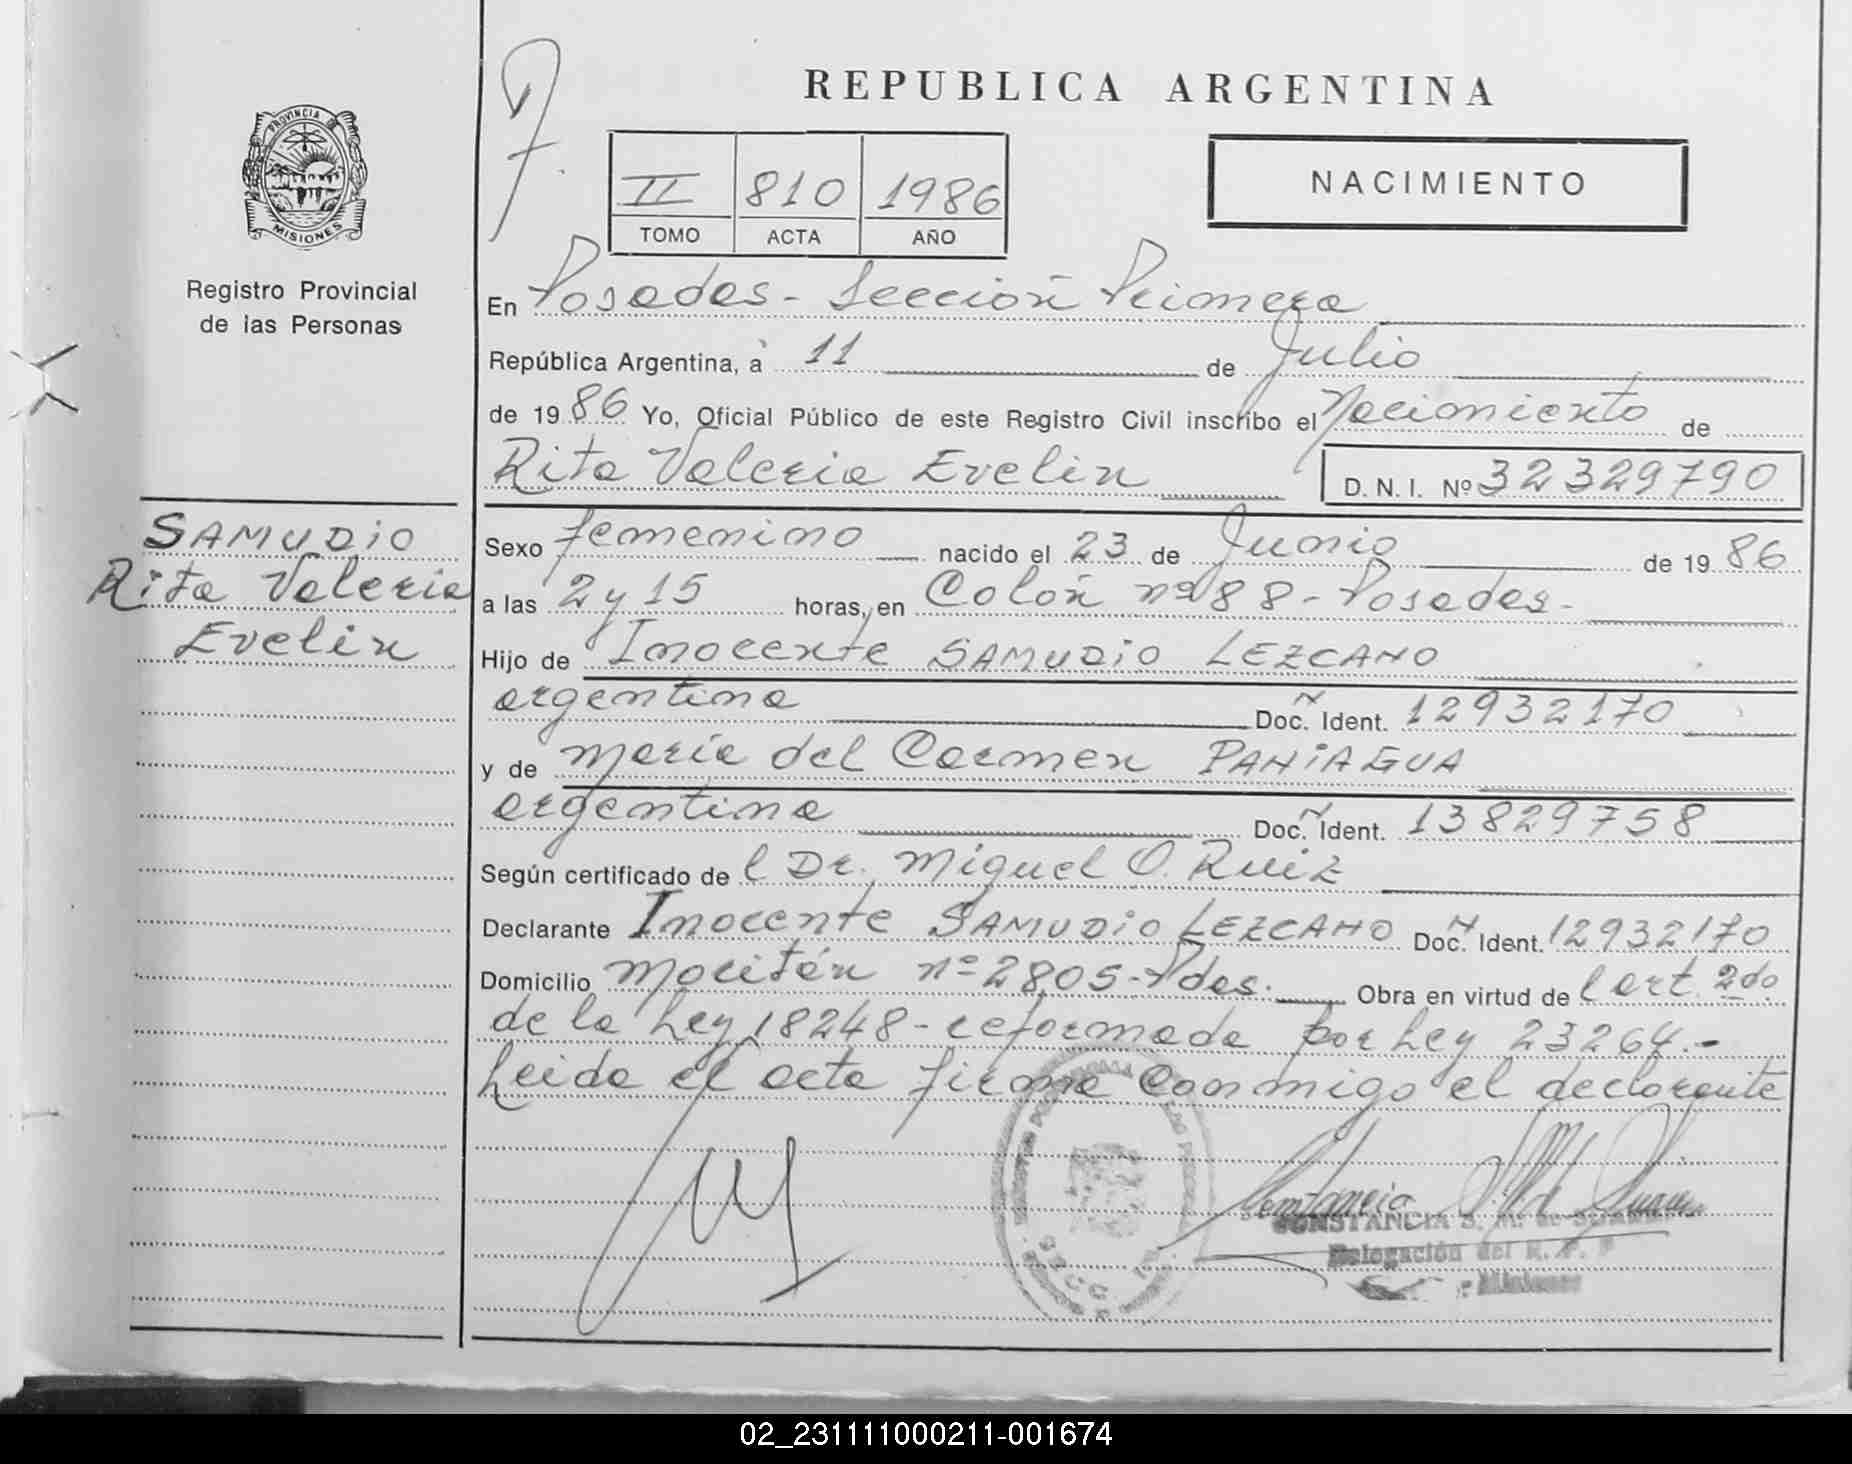 REPUBLICA ARGENTINA
PROVINCIA DE
MISIONES
Registro Provincial
de las Personas
II 810 1986
TOMO ACTA AÑO
NACIMIENTO
En Posadas - Sección Primera
República Argentina, a 11 de Julio
de 1986 Yo, Oficial Público de este Registro Civil inscribo el Nacimiento de
Rita Valeria Evelin D.N.I. Nº 32329790
SAMUDIO
Rita Valeria
Evelin
Sexo femenino nacido el 23 de Junio de 1986
a las 2 y 15 horas, en Colón nº 88 - Posadas -
Hijo de Inocente SAMUDIO LEZCANO
argentino Doc. Ident. 12932170
y de María del Carmen PANIAGUA
argentina Doc. Ident. 13829758
Según certificado de l Dr. Miguel O. Ruiz
Declarante Inocente SAMUDIO LEZCANO Doc. Ident. 12932170
Domicilio Mocitén nº 2805 - Pdas. Obra en virtud de l art. 2do
de la Ley 18248 - reformada por Ley 23264.-
Leida el acta firma conmigo el declarante
CONSTANCIA S. M. de
Delegación del R. P. P
Misiones
02_231111000211-001674